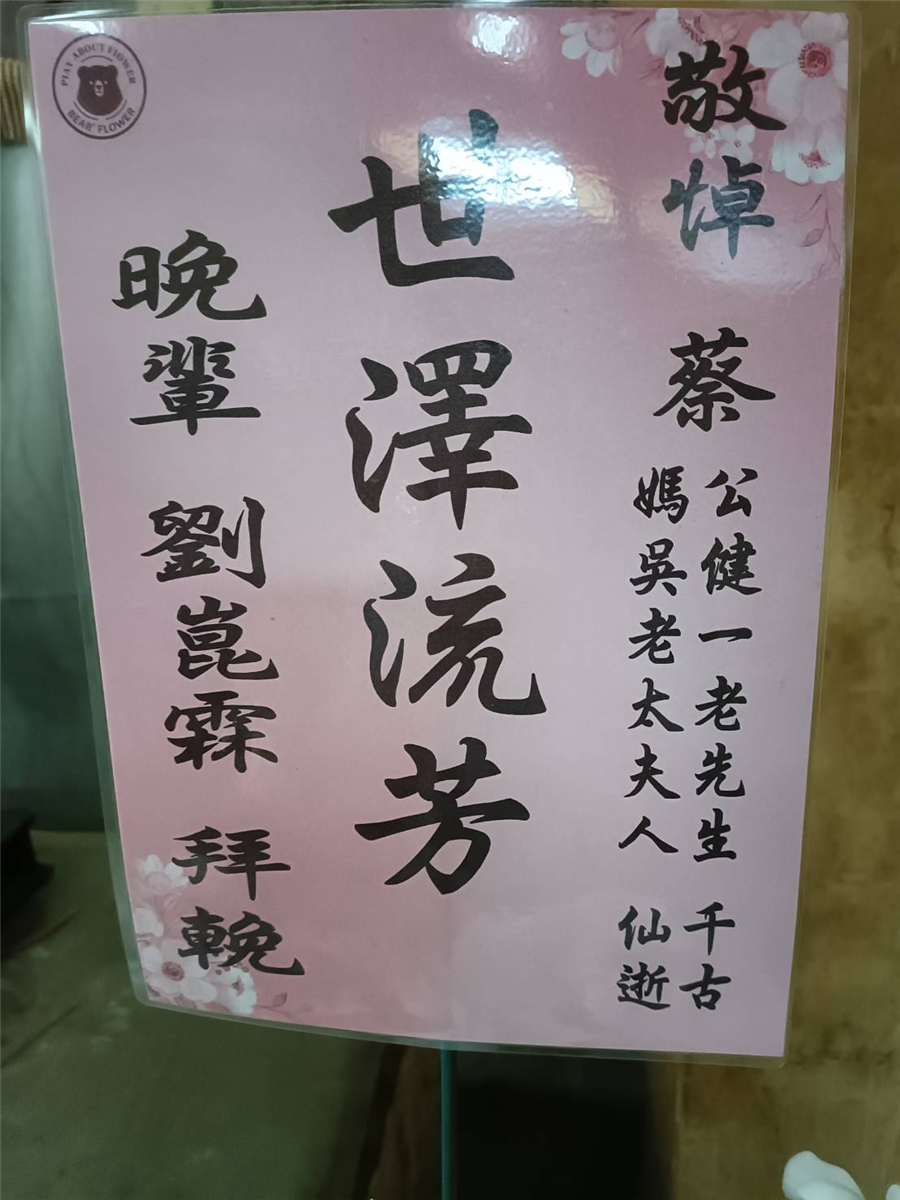 敬悼 蔡
公健一老先生 千古
媽吳老太夫人 仙逝
世澤流芳
晚輩 劉崑霖 拜輓
PLAY ABOUT FLOWER
BEAR' FLOWER